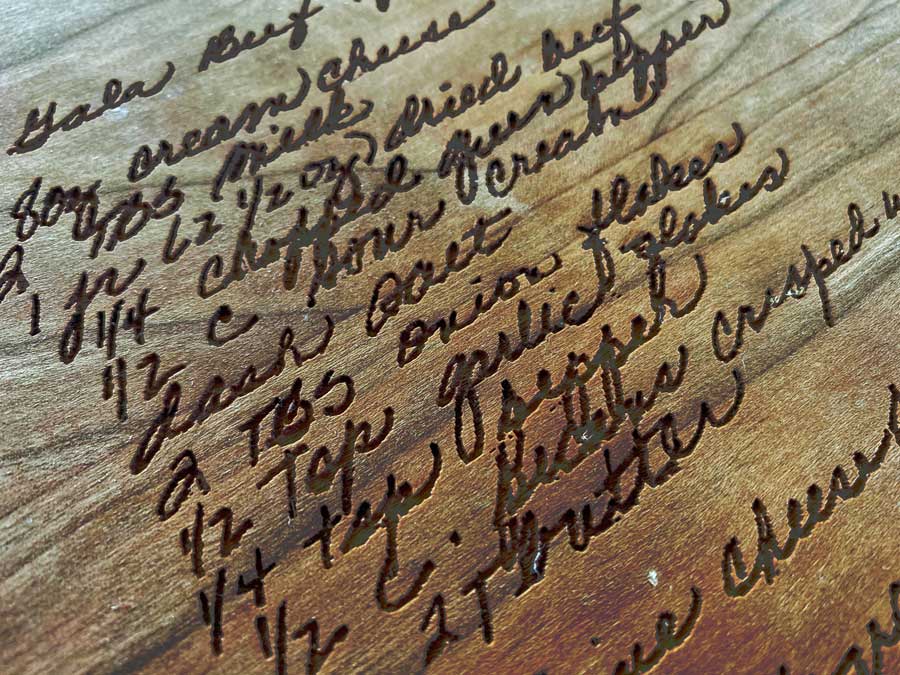 Gala Beef
8oz cream cheese
2 TBS Milk
1 jr (2 1/2 oz) dried beef
1/4 chopped green pepper
1/2 c sour cream
dash Salt
2 TBS onion flakes
1/2 Tsp garlic flakes
1/4 tsp pepper
1/2 C. crisped
2T butter
cheese